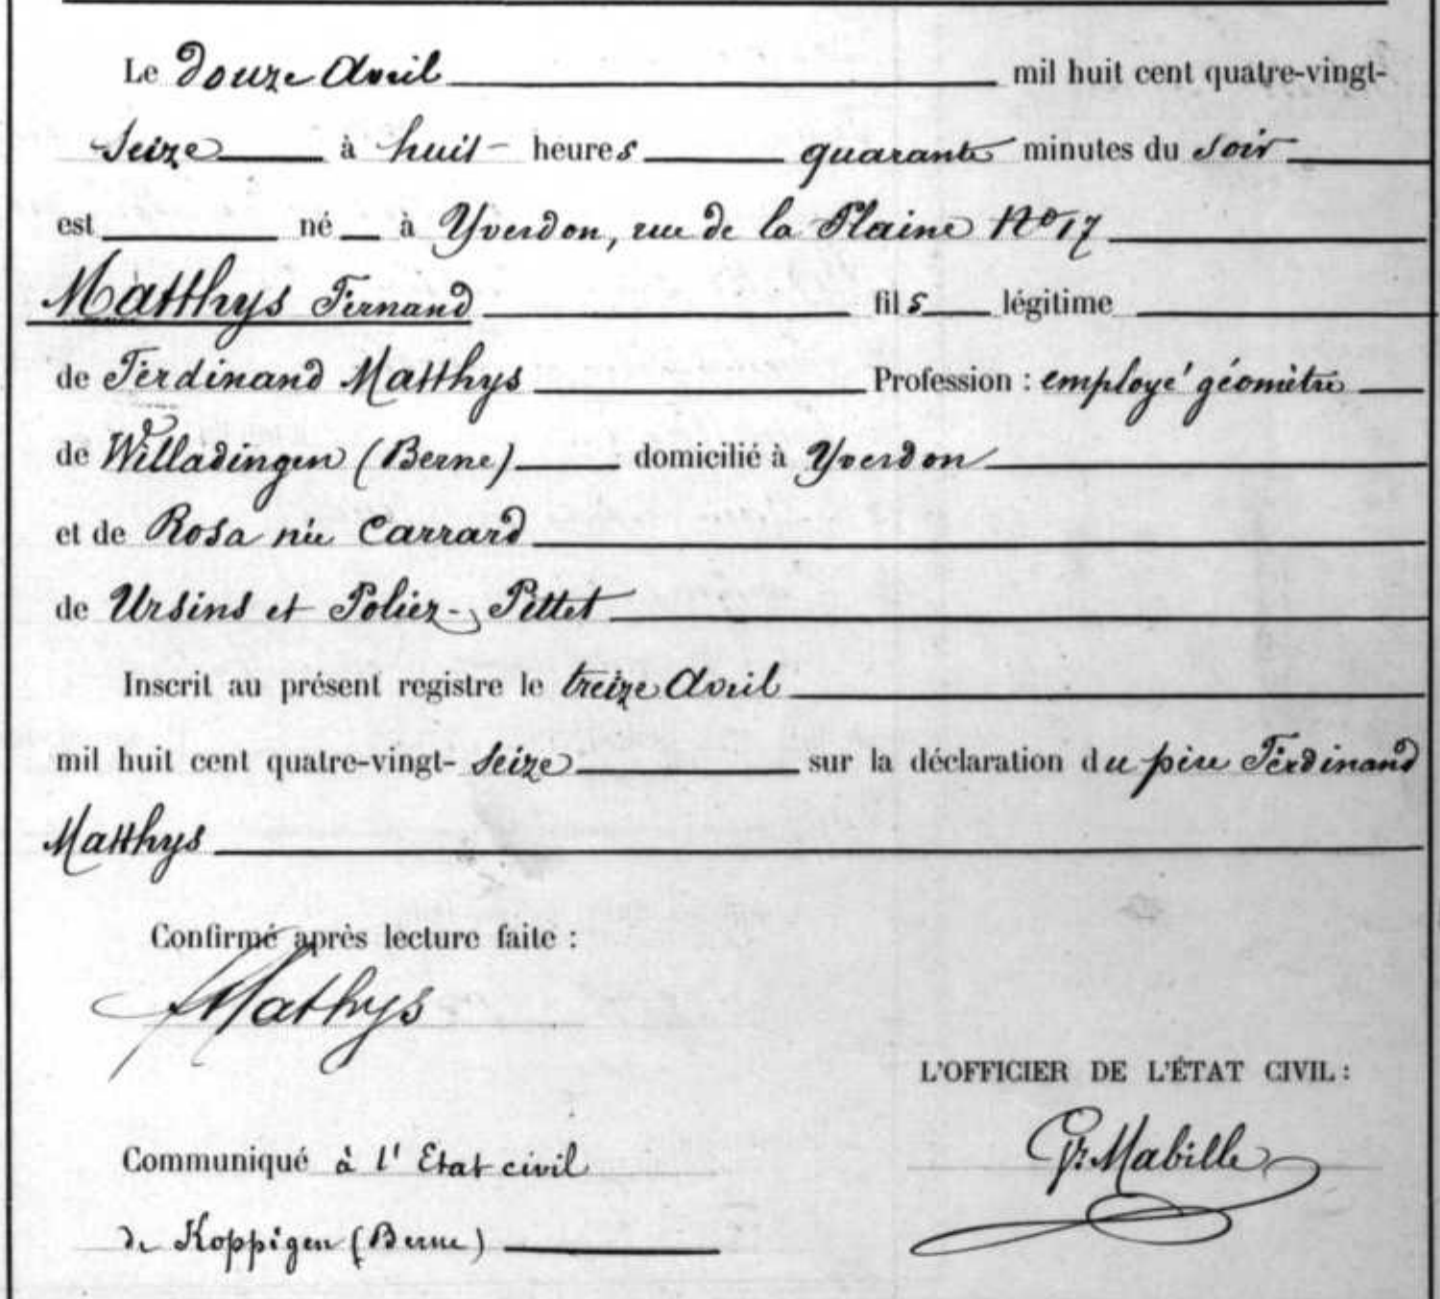 Le douze Avril mil huit cent quatre-vingt-
seize à huit heures quarante minutes du soir
est né à Yverdon, rue de la Plaine No 17
Matthys Fernand fils légitime
de Ferdinand Matthys Profession : employé géomètre
de Willadingen (Berne) domicilié à Yverdon
et de Rosa née Carrard
de Ursins et Poliez-Pittet
Inscrit au présent registre le treize Avril
mil huit cent quatre-vingt-seize sur la déclaration du père Ferdinand
Matthys
Confirmé après lecture faite :
Mathys
L'OFFICIER DE L'ÉTAT CIVIL :
Gr. Mabille
Communiqué à l'Etat civil
de Koppigen (Berne)